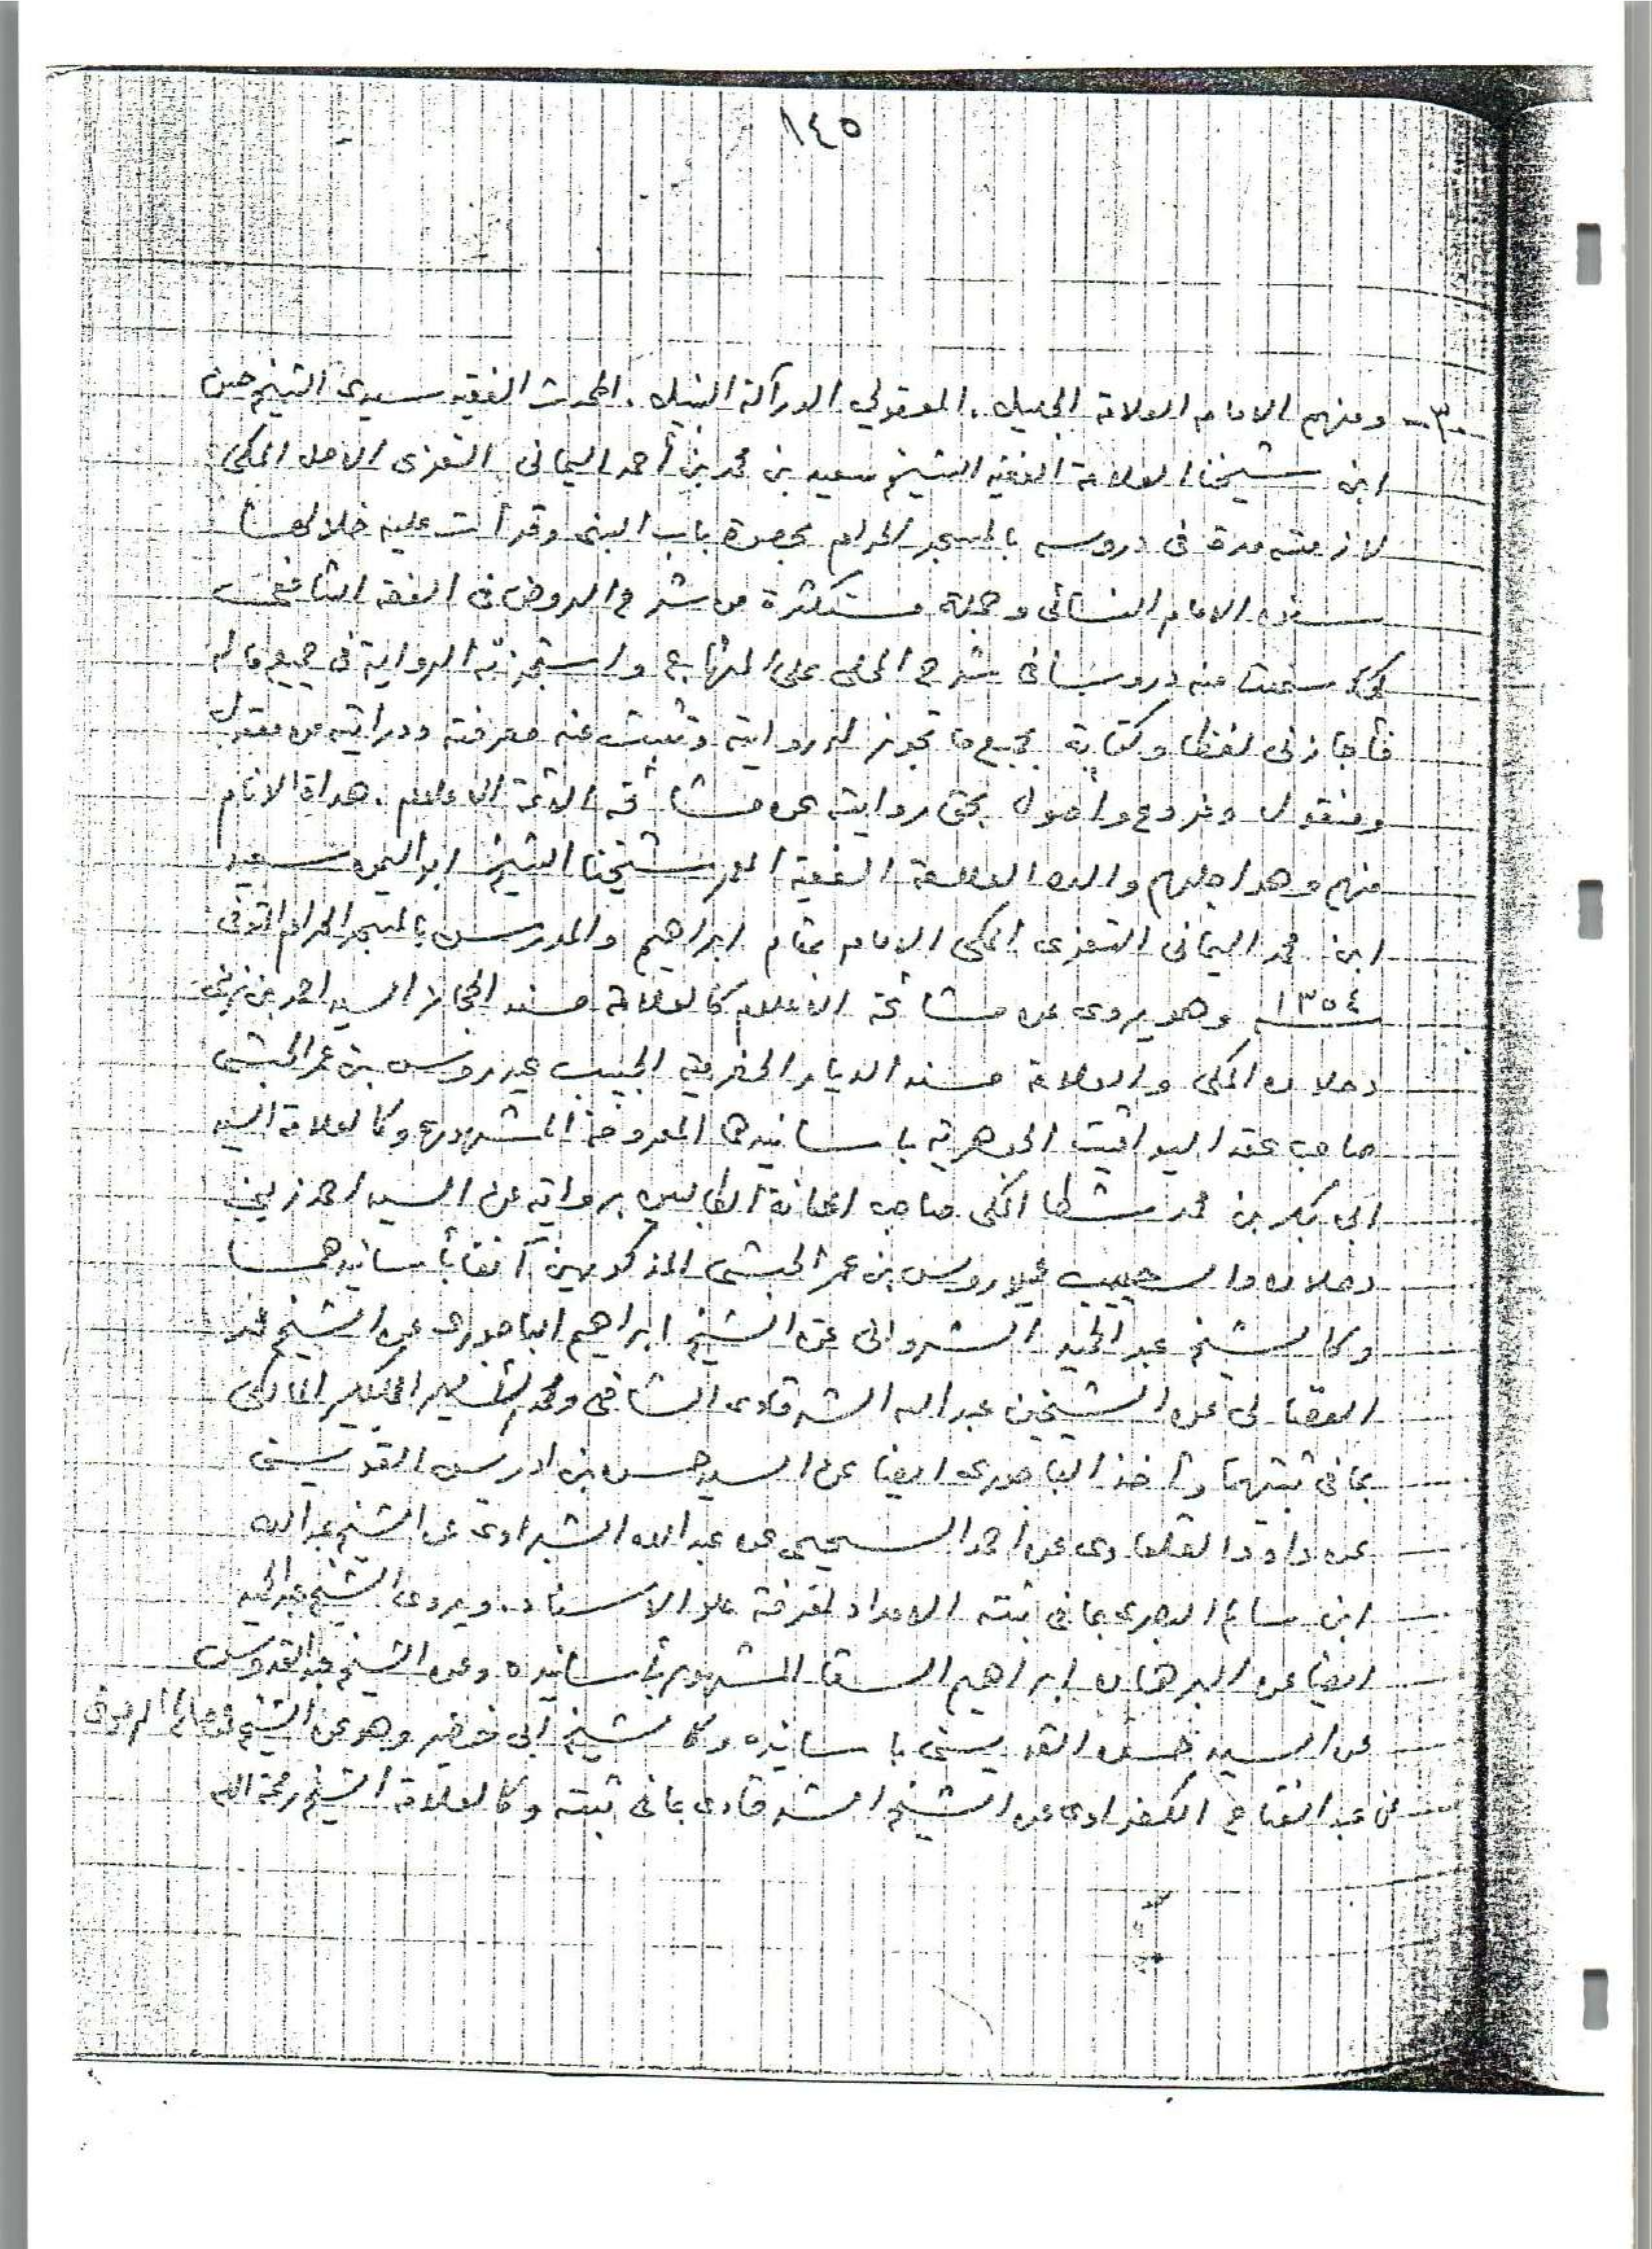 ١٤٥
٣- ومنهم الامام العلامة الجليل. المعقولي الدراكة النبيل. المحدث الفقيه سيدى الشيخ حسن
ابن شيخنا العلامة الفقيه الشيخ سعيد بن محمد بن أحمد اليمانى التعزى الاصل المكى
لازمته مدة فى دروسه بالمسجد الحرام بحصوة باب النبى وقرأت عليه خلالها
سنن الامام النسائى وجملة مستكثرة من شرح الروض فى الفقه الشافعى
كما سمعت منه دروسا فى شرح المحلى على المنهاج واستجزته الرواية فى جميع ماله
فأجازنى لفظا وكتابة بجميع ما تجوز له روايته وثبتت عنه معرفته ودرايته من معقول
ومنقول وفروع وأصول بحق روايته عن مشائخه الائمة الاعلام. هداة الانام
منهم وهو اجلهم والده العلامة الفقيه المعمر شيخنا الشيخ ابو اليمن سعيد
ابن محمد اليمانى التعزى المكى الامام بمقام ابراهيم والمدرس بالمسجد الحرام المتوفى
١٣٥٤ وهو يروى عن مشائخه الاعلام كالعلامة مسند الحجاز السيد احمد بن زينى
دحلان المكى والعلامة مسند الديار الحضرمية الحبيب عيدروس بن عمر الحبشى
صاحب عقد اليواقيت الجوهرية باسانيدهما المعروفة المشهورة وكالعلامة السيد
ابى بكر بن محمد شطا المكى صاحب اعانة الطالبين بروايته عن السيد احمد زينى
دحلان والحبيب عيدروس بن عمر الحبشى المذكورين آنفا بأسانيدهما
وكالشيخ عبد الحميد الشروانى عن الشيخ ابراهيم الباجورى عن الشيخ محمد
الفضالى عن الشيخين عبد الله الشرقاوى الشافعى ومحمد الأمير الكبير المالكى
بما فى ثبتيهما وأخذ الباجورى ايضا عن السيد حسن بن ادريس القويسنى
عن داود القلعاوى عن أحمد السحيمى عن عبد الله الشبراوى عن الشيخ عبد الله
ابن سالم البصرى بما فى ثبته الامداد لمعرفة علو الاسناد. ويروى الشيخ عبد الحميد
ايضا عن البرهان ابراهيم السقا المشهور بأسانيده وعن الشيخ عبد القدوس
عن السيد حسن القويسنى باسانيده وكالشيخ أبى خضير وهو عن الشيخ صالح
عن عبد الفتاح الكفراوى عن الشيخ الشرقاوى بما فى ثبته وكالعلامة الشيخ رحمة الله